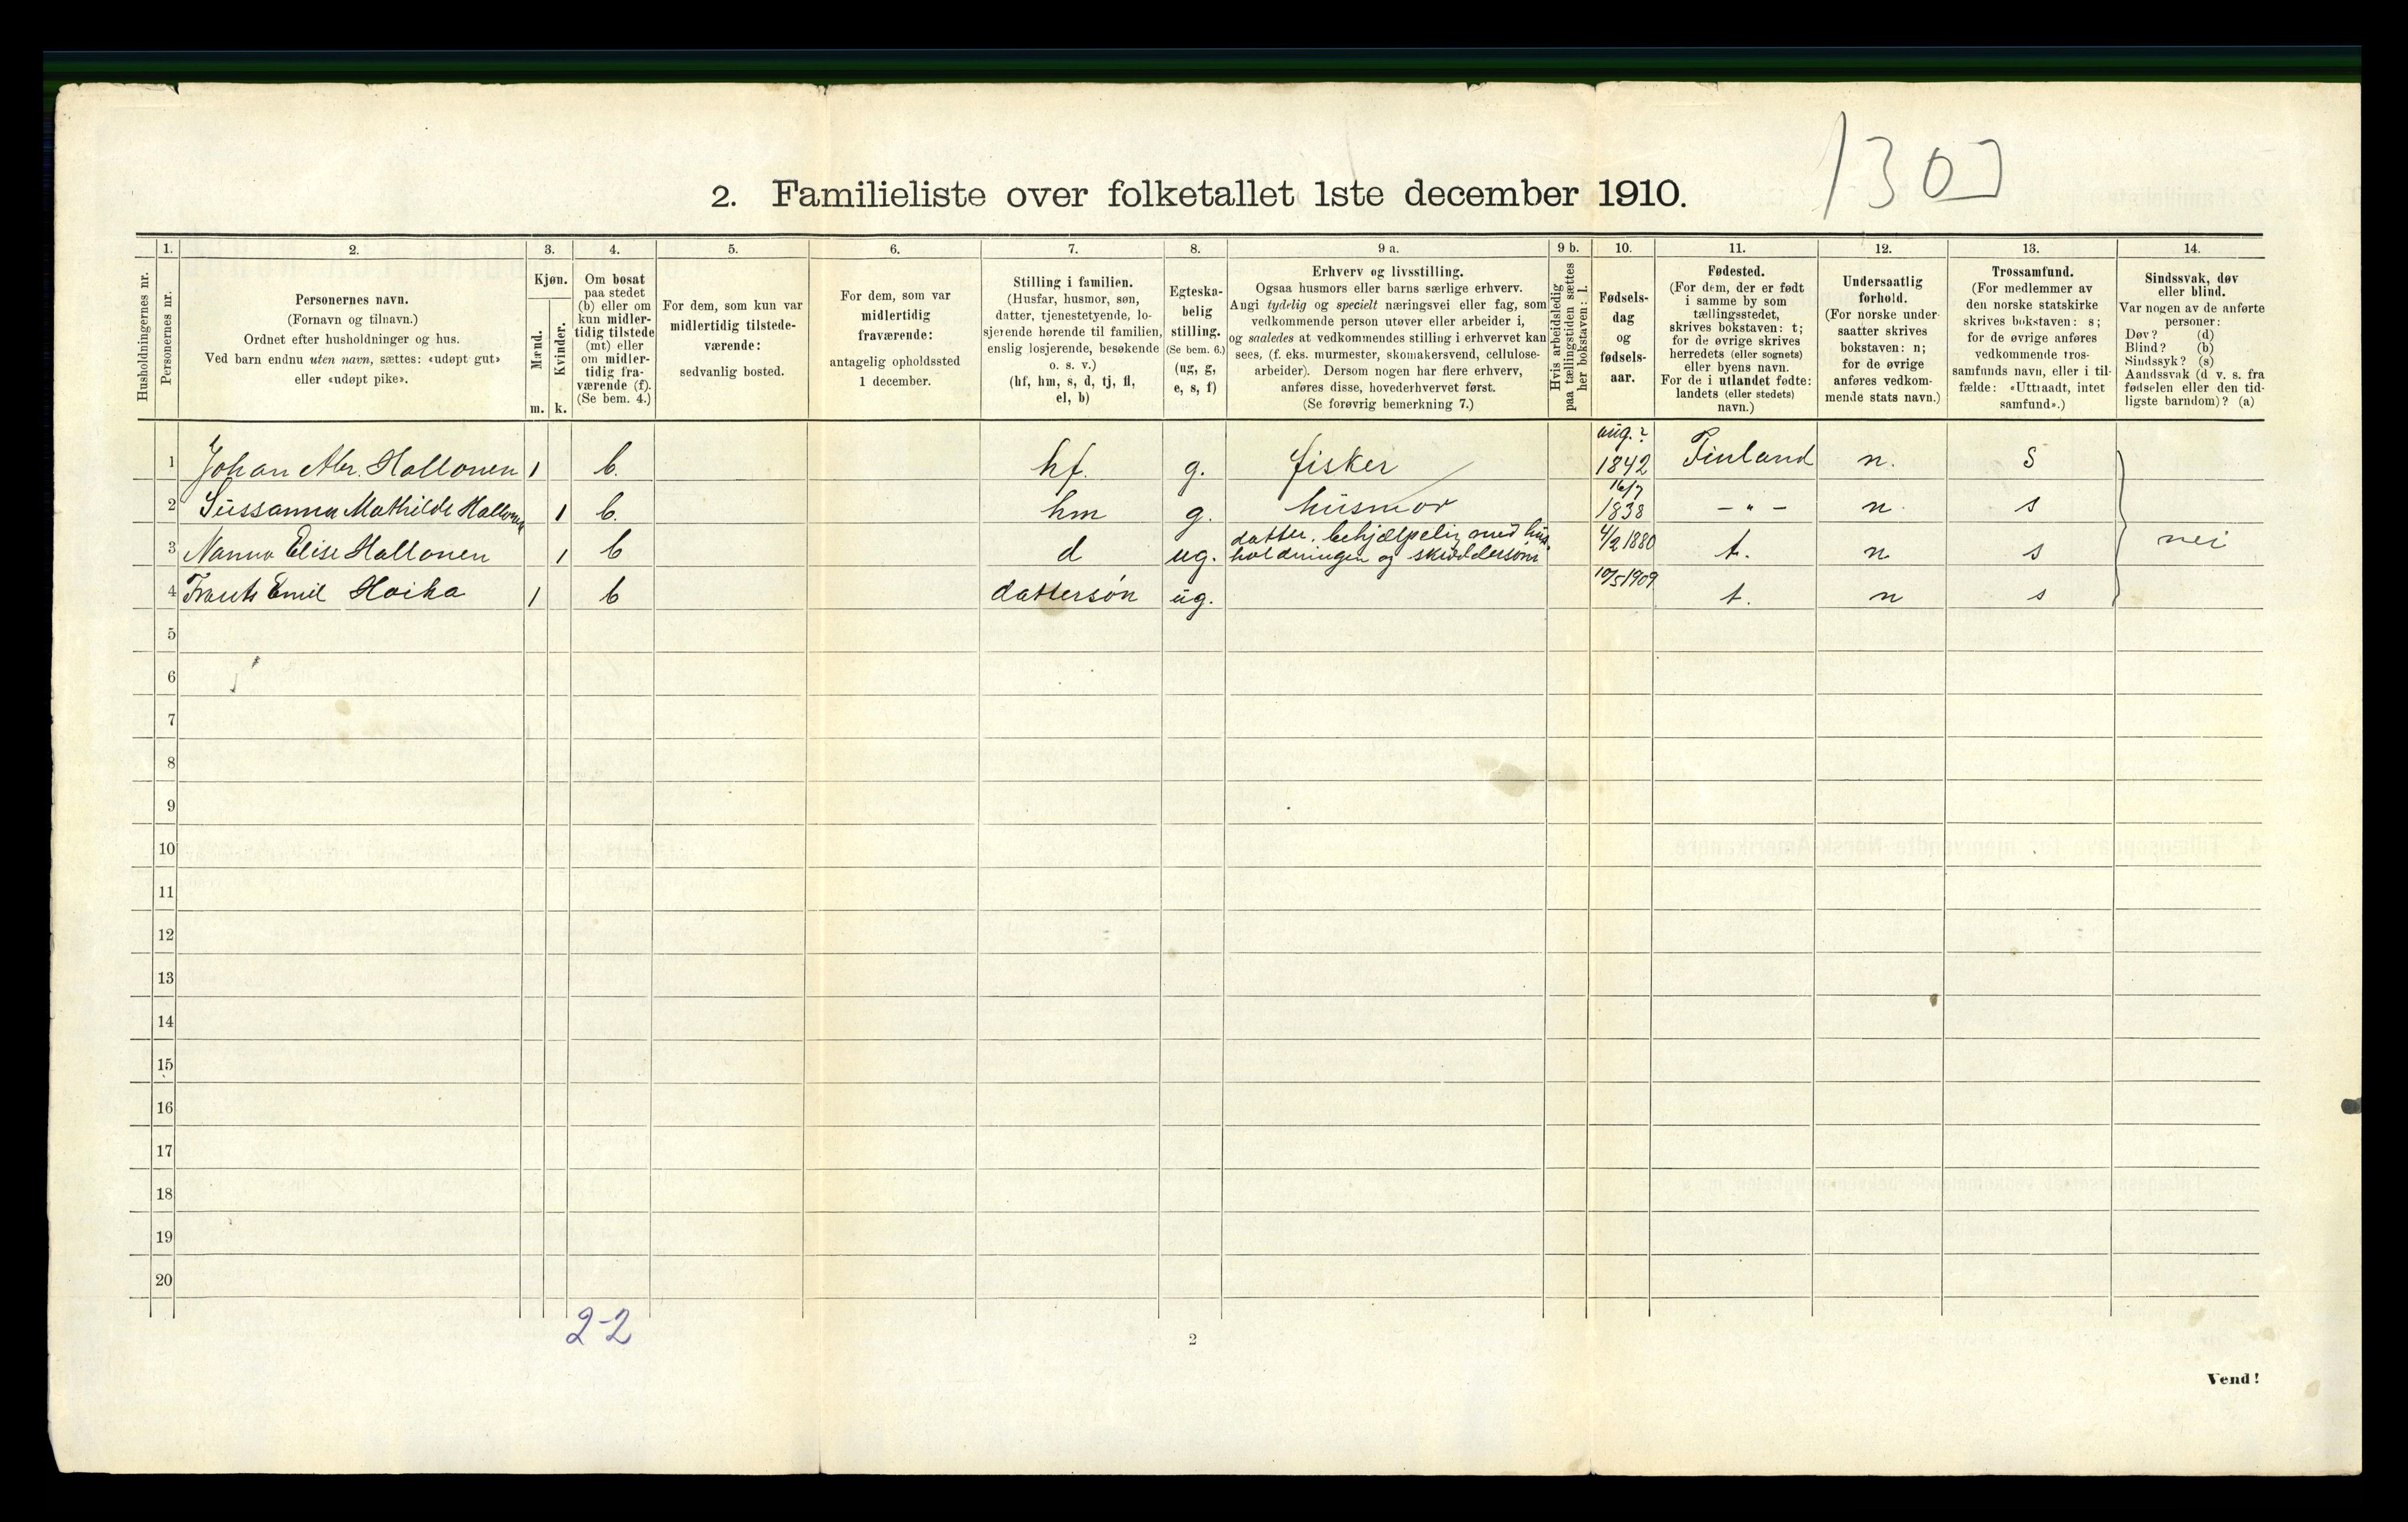 130
2. Familieliste over folketallet 1ste december 1910.
Husholdningernes nr.
1.
Personernes nr.
2.
Personernes navn.
(Fornavn og tilnavn.)
Ordnet efter husholdninger og hus.
Ved barn endnu uten navn, sættes: «udøpt gut»
eller «udøpt pike».
3.
Kjøn.
Mænd.
Kvinder.
m. k.
4.
Om bosat
paa stedet
(b) eller om
kun midler-
tidig tilstede
(mt) eller
om midler-
tidig fra-
værende (f).
(Se bem. 4.)
5.
For dem, som kun var
midlertidig tilstede-
værende:
sedvanlig bosted.
6.
For dem, som var
midlertidig
fraværende:
antagelig opholdssted
1 december.
7.
Stilling i familien.
(Husfar, husmor, søn,
datter, tjenestetyende, lo-
sjerende hørende til familien,
enslig losjerende, besøkende
o. s. v.)
(hf, hm, s, d, tj, fl,
el, b)
8.
Egteska-
belig
stilling.
(Se bem. 6.)
(ug, g,
e, s, f)
9 a.
Erhverv og livsstilling.
Ogsaa husmors eller barns særlige erhverv.
Angi tydelig og specielt næringsvei eller fag, som
vedkommende person utøver eller arbeider i,
og saaledes at vedkommendes stilling i erhvervet kan
sees, (f. eks. murmester, skomakersvend, cellulose-
arbeider). Dersom nogen har flere erhverv,
anføres disse, hovederhvervet først.
(Se forøvrig bemerkning 7.)
9 b.
Hvis arbeidsledig
paa tællingstiden sættes
her bokstaven: l.
10.
Fødsels-
dag
og
fødsels-
aar.
11.
Fødested.
(For dem, der er født
i samme by som
tællingsstedet,
skrives bokstaven: t;
for de øvrige skrives
herredets (eller sognets)
eller byens navn.
For de i utlandet fødte:
landets (eller stedets)
navn.)
12.
Undersaatlig
forhold.
(For norske under-
saatter skrives
bokstaven: n;
for de øvrige
anføres vedkom-
mende stats navn.)
13.
Trossamfund.
(For medlemmer av
den norske statskirke
skrives bokstaven: s;
for de øvrige anføres
vedkommende tros-
samfunds navn, eller i til-
fælde: «Uttraadt, intet
samfund».)
14.
Sindssvak, døv
eller blind.
Var nogen av de anførte
personer:
Døv? (d)
Blind? (b)
Sindssyk? (s)
Aandssvak (d v. s. fra
fødselen eller den tid-
ligste barndom)? (a)
1 Johan Abr. Hallonen 1 b. hf. g. fisker aug.? 1842 Finland n. s
2 Sussanna Mathilde Hallonen 1 b. hm g. husmor 16/7 1838 – " – n. s
3 Nanna Elise Hallonen 1 b d ug. datter, behjælpelig med hus-
holdningen og 4/2 1880 t. n s nei
4 Frants Emil Hoika 1 b dattersøn ug. 10/5 1909 t. n s
5
6
7
8
9
10
11
12
13
14
15
16
17
18
19
20
2-2
2
Vend!